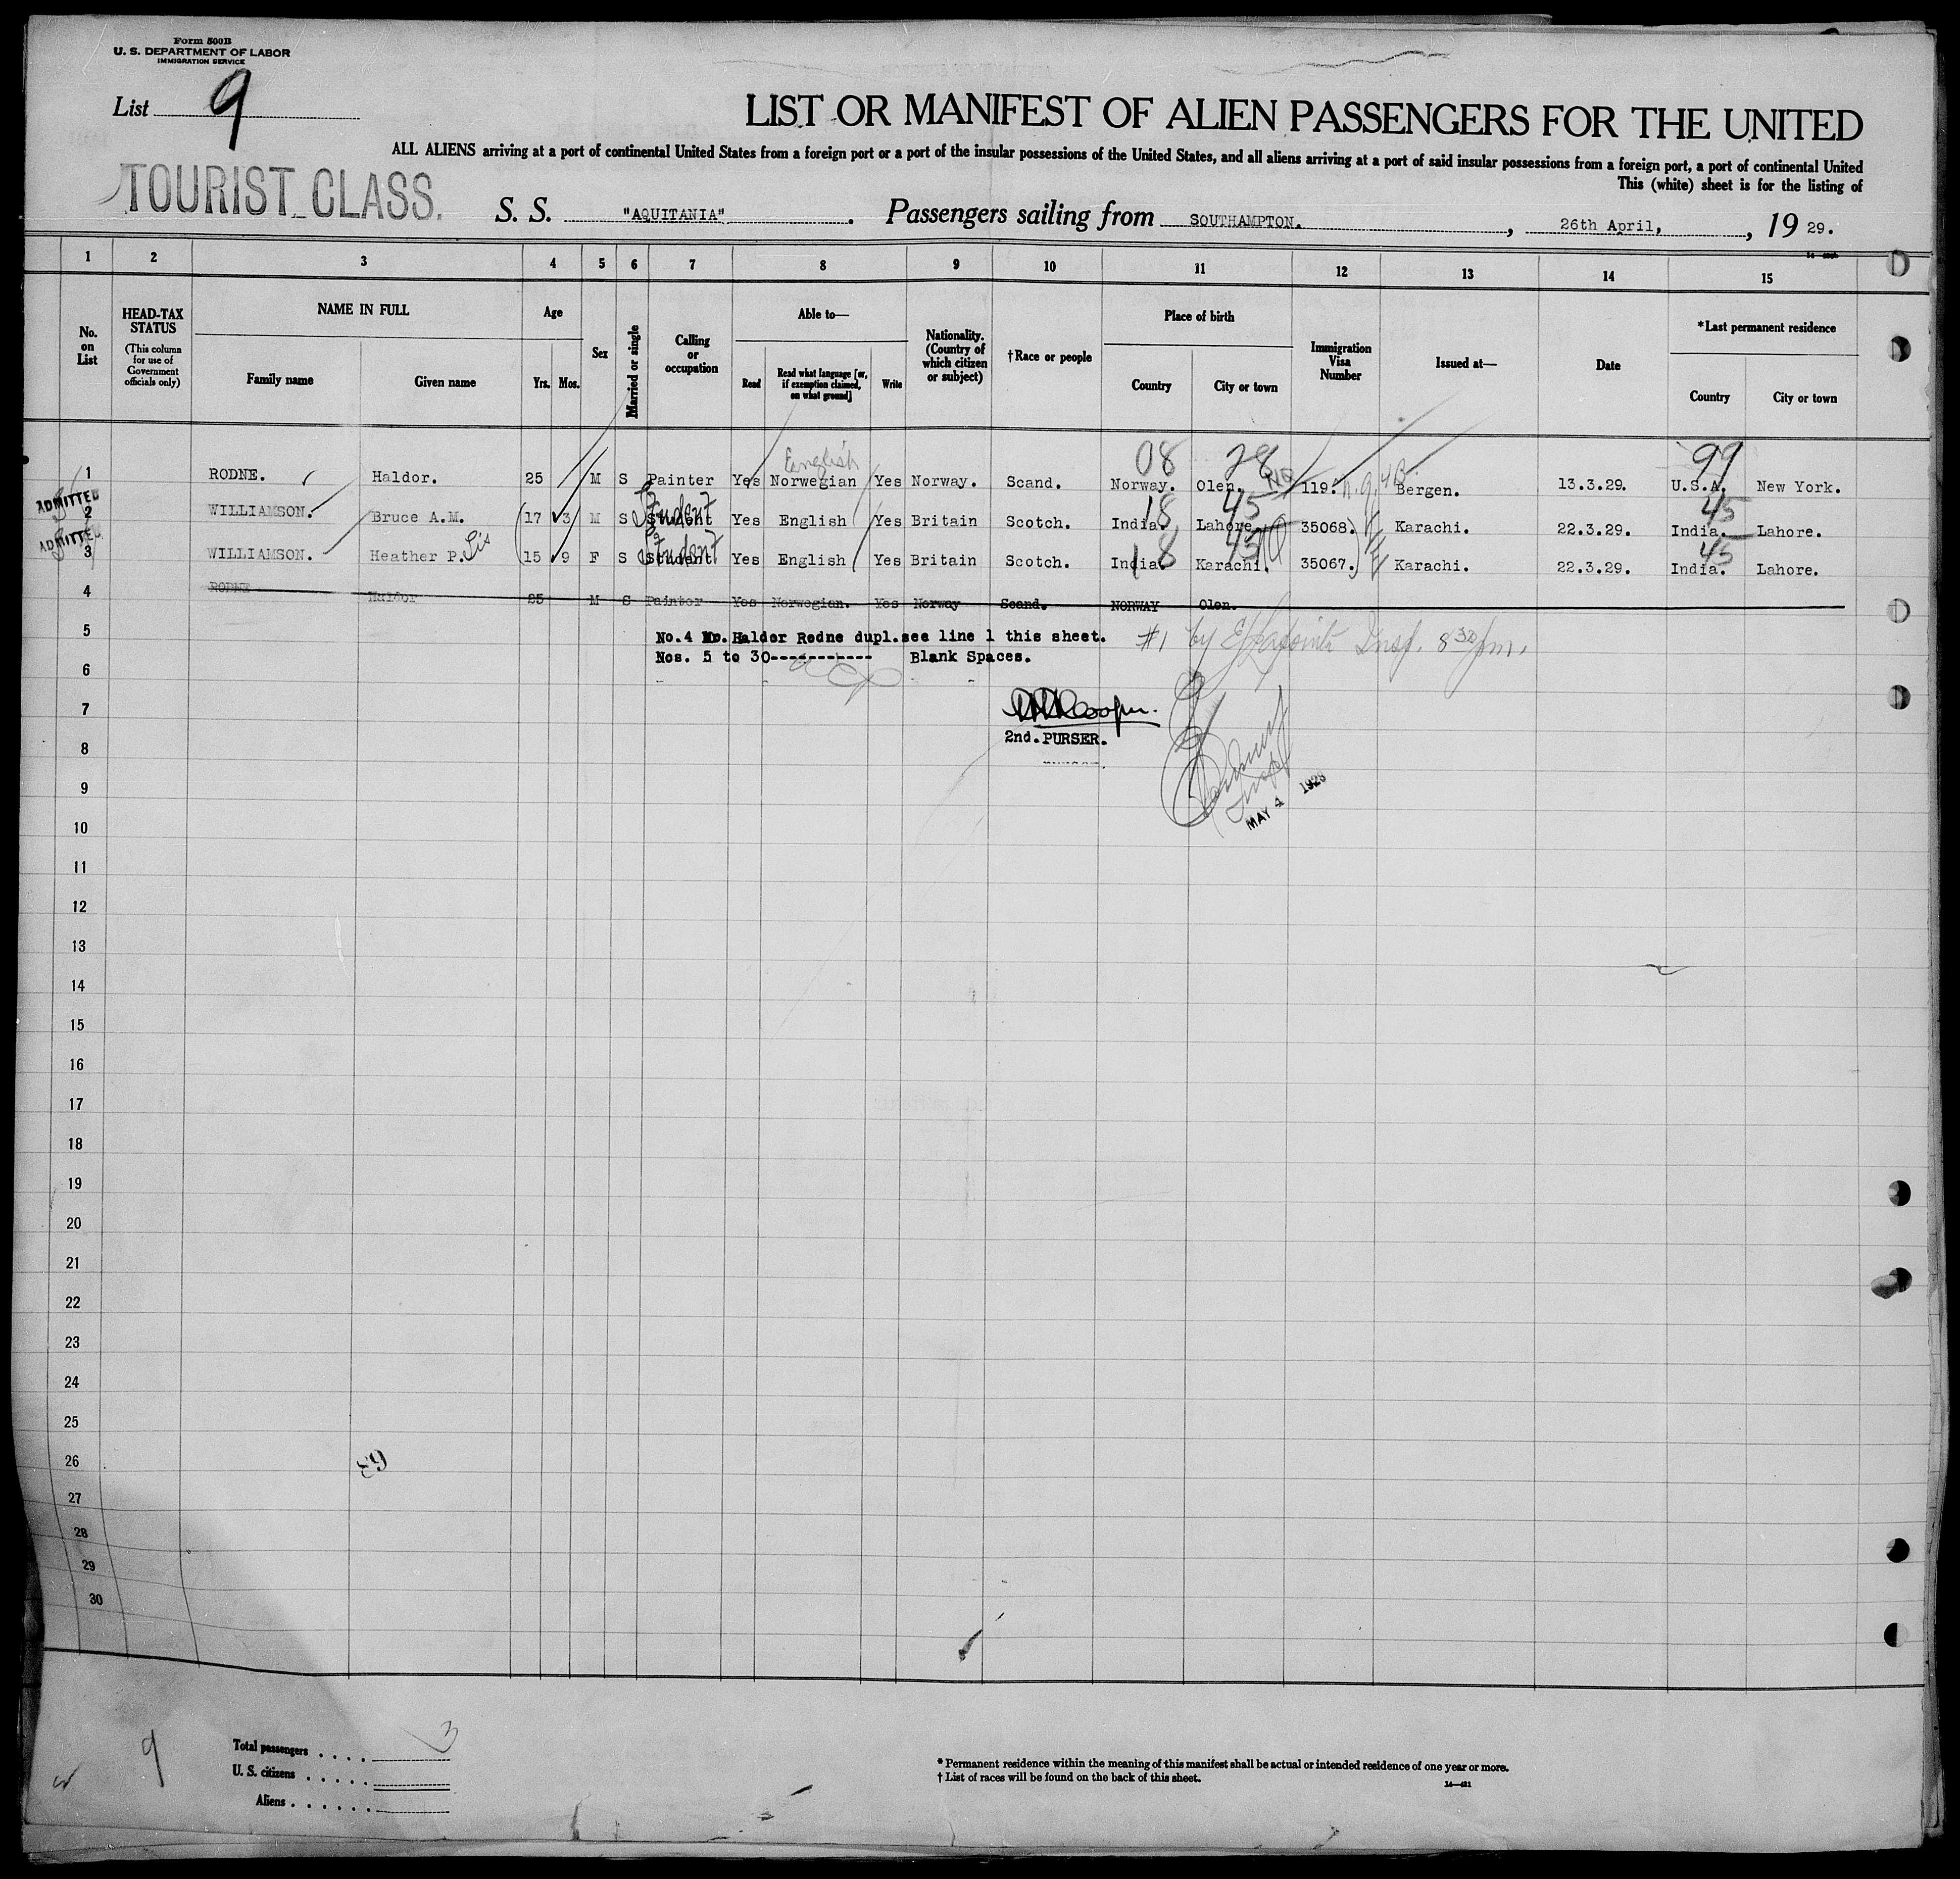 Form 500B
U. S. DEPARTMENT OF LABOR
IMMIGRATION SERVICE
List 9
LIST OR MANIFEST OF ALIEN PASSENGERS FOR THE UNITED
ALL ALIENS arriving at a port of continental United States from a foreign port or a port of the insular possessions of the United States, and all aliens arriving at a port of said insular possessions from a foreign port, a port of continental United
This (white) sheet is for the listing of
TOURIST CLASS.
S. S. "AQUITANIA". Passengers sailing from SOUTHAMPTON. , 26th April, , 19 29.
1 2 3 4 5 6 7 8 9 10 11 12 13 14 15
No. on List
HEAD-TAX STATUS
(This column for use of Government officials only)
NAME IN FULL
Family name
Given name
Age
Yrs. Mos.
Sex
Married or single
Calling or occupation
Able to—
Read
Read what language [or, if exemption claimed, on what ground]
Write
Nationality. (Country of which citizen or subject)
†Race or people
Place of birth
Country
City or town
Immigration Visa Number
Issued at—
Date
*Last permanent residence
Country
City or town
English 08 28 99
1 RODNE. Haldor. 25 M S Painter Yes Norwegian Yes Norway. Scand. Norway. Olen. 119. Bergen. 13.3.29. U.S.A. New York.
ADMITTED
Student 18 45 45
2 WILLIAMSON. Bruce A.M. 17 3 M S Student Yes English Yes Britain Scotch. India. Lahore. 35068. Karachi. 22.3.29. India. Lahore.
ADMITTED
Sis Student 18 45 45
3 WILLIAMSON. Heather P. 15 9 F S Student Yes English Yes Britain Scotch. India. Karachi. 35067. Karachi. 22.3.29. India. Lahore.
4 RODNE Haldor 25 M S Painter Yes Norwegian. Yes Norway Scand. NORWAY Olen.
5 No.4 Mr. Haldor Rodne dupl.see line 1 this sheet. #1 by Insp. 8 30 pm.
Nos. 5 to 30----------- Blank Spaces.
6
7 Cooper.
2nd. PURSER.
8
9 MAY 4 1929
10
11
12
13
14
15
16
17
18
19
20
21
22
23
24
25
26 89
27
28
29
30
9
Total passengers . . . . 3
U. S. citizens . . . . .
Aliens . . . . . .
* Permanent residence within the meaning of this manifest shall be actual or intended residence of one year or more.
† List of races will be found on the back of this sheet.
14—421